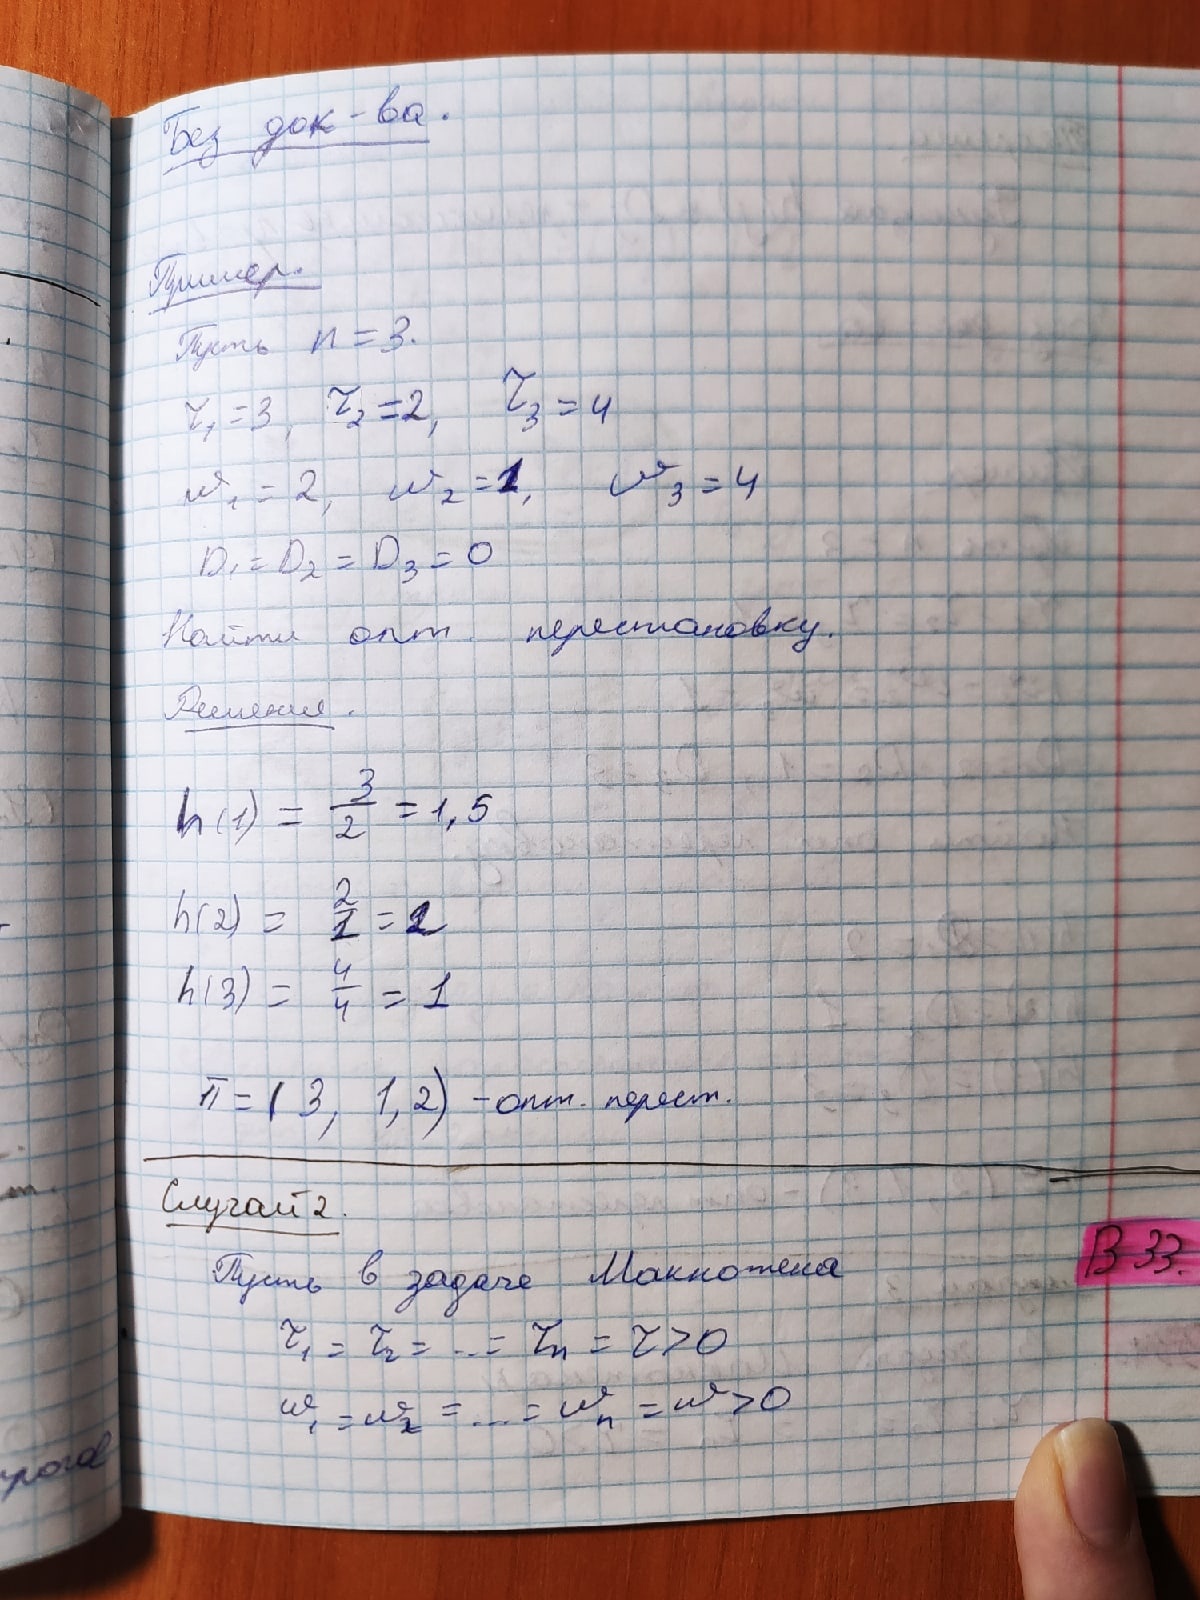 Без док-ва.
Пример.
Пусть n = 3.
τ₁ = 3, τ₂ = 2, τ₃ = 4
w₁ = 2, w₂ = 1, w₃ = 4
D₁ = D₂ = D₃ = 0
Найти опт. перестановку.
Решение.
h(1) = 3/2 = 1,5
h(2) = 2/1 = 2
h(3) = 4/4 = 1
π = (3, 1, 2) - опт. перест.
Случай 2.
В 33.
Пусть в задаче Макнотена
τ₁ = τ₂ = ... = τₙ = τ > 0
w₁ = w₂ = ... = wₙ = w > 0